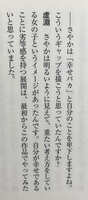 ――さやかは「幸せバカ」と自分のことを卑下しますよね。
こういうギャップを描こうと思っていたんですか？
虚淵　さやかは明るいように見えて、重たい考え方をしてい
る女の子というイメージがあったんです。自分が幸せである
ことに劣等感を持つ展開は、最初からこの作品でやってみた
いと思っていました。